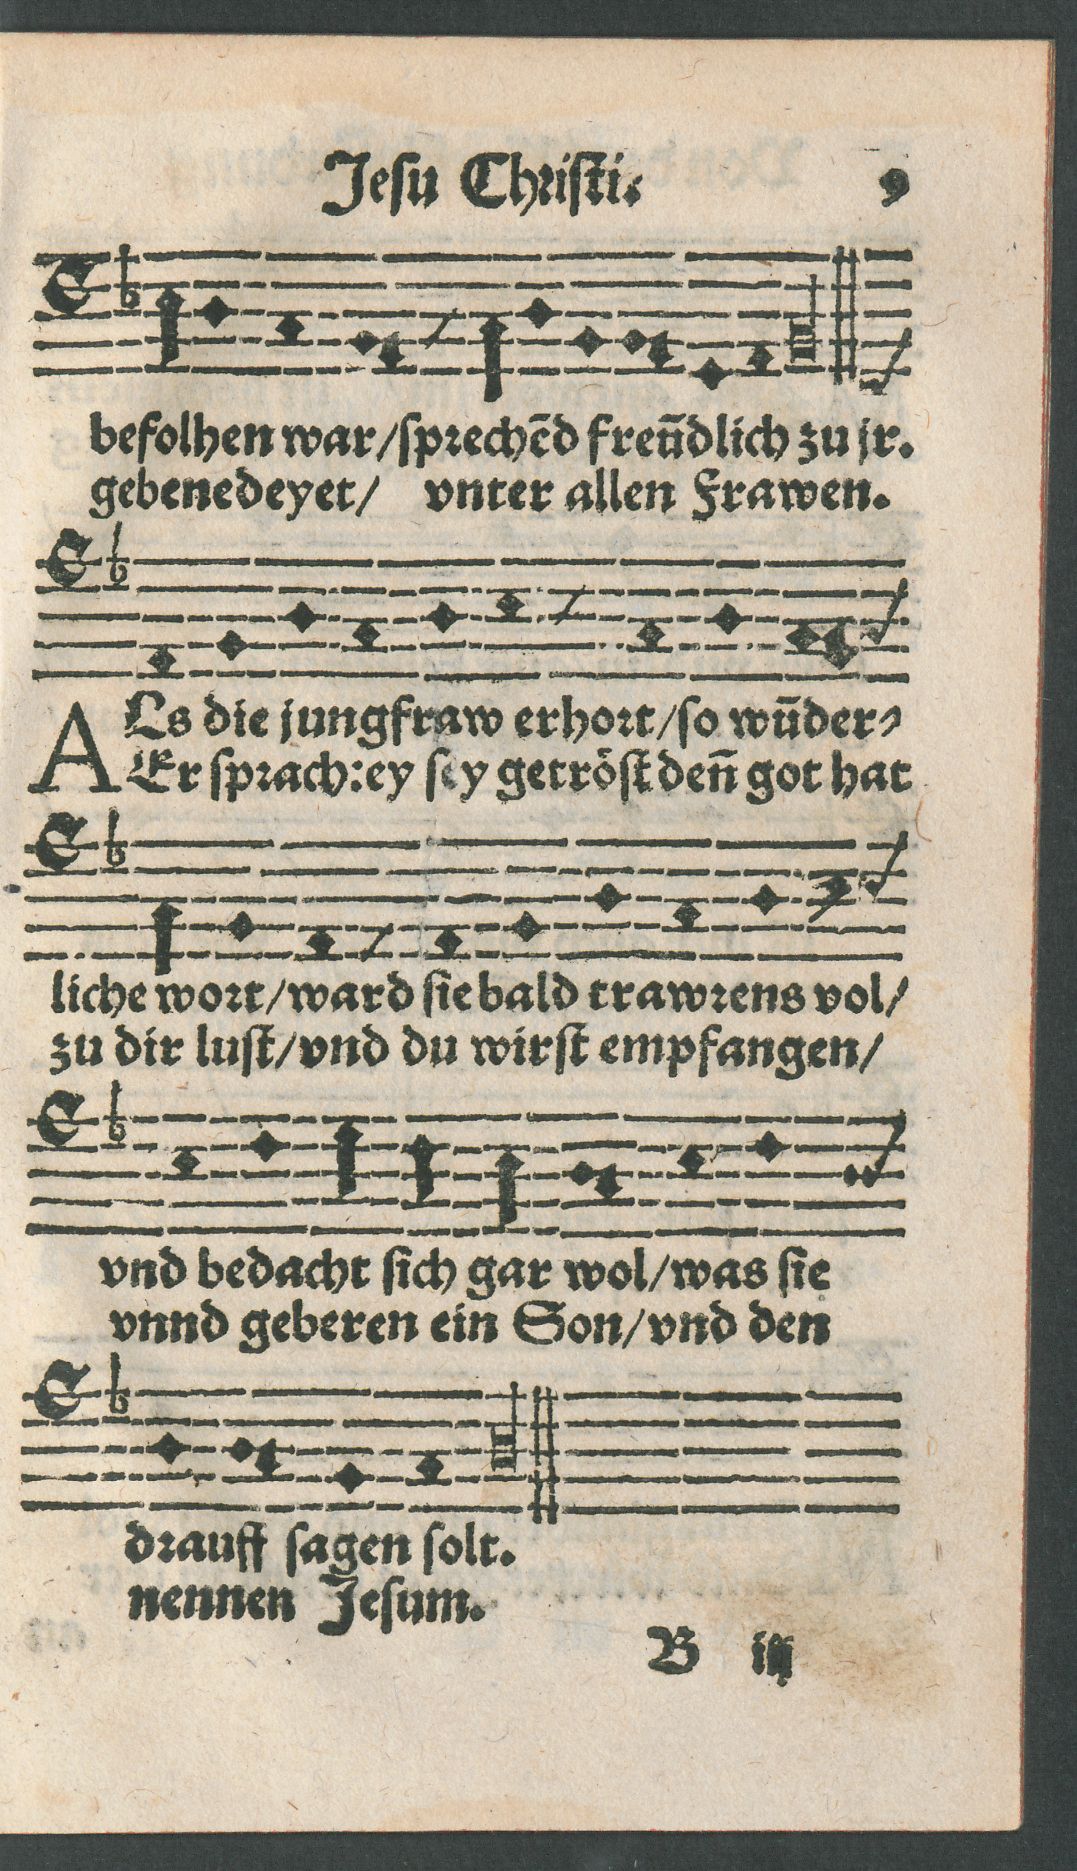 Jesu Christi. 9
befolhen war/sprechēd freūdlich zu jr.
gebenedeyet/ vnter allen Frawen.
ALs die jungfraw erhort/so wūder⸗
Er sprach:ey sey getröst deñ got hat
liche wort/ward sie bald trawrens vol/
zu dir lust/vnd du wirst empfangen/
vnd bedacht sich gar wol/was sie
vnnd geberen ein Son/vnd den
drauff sagen solt.
nennen Jesum.
B iij